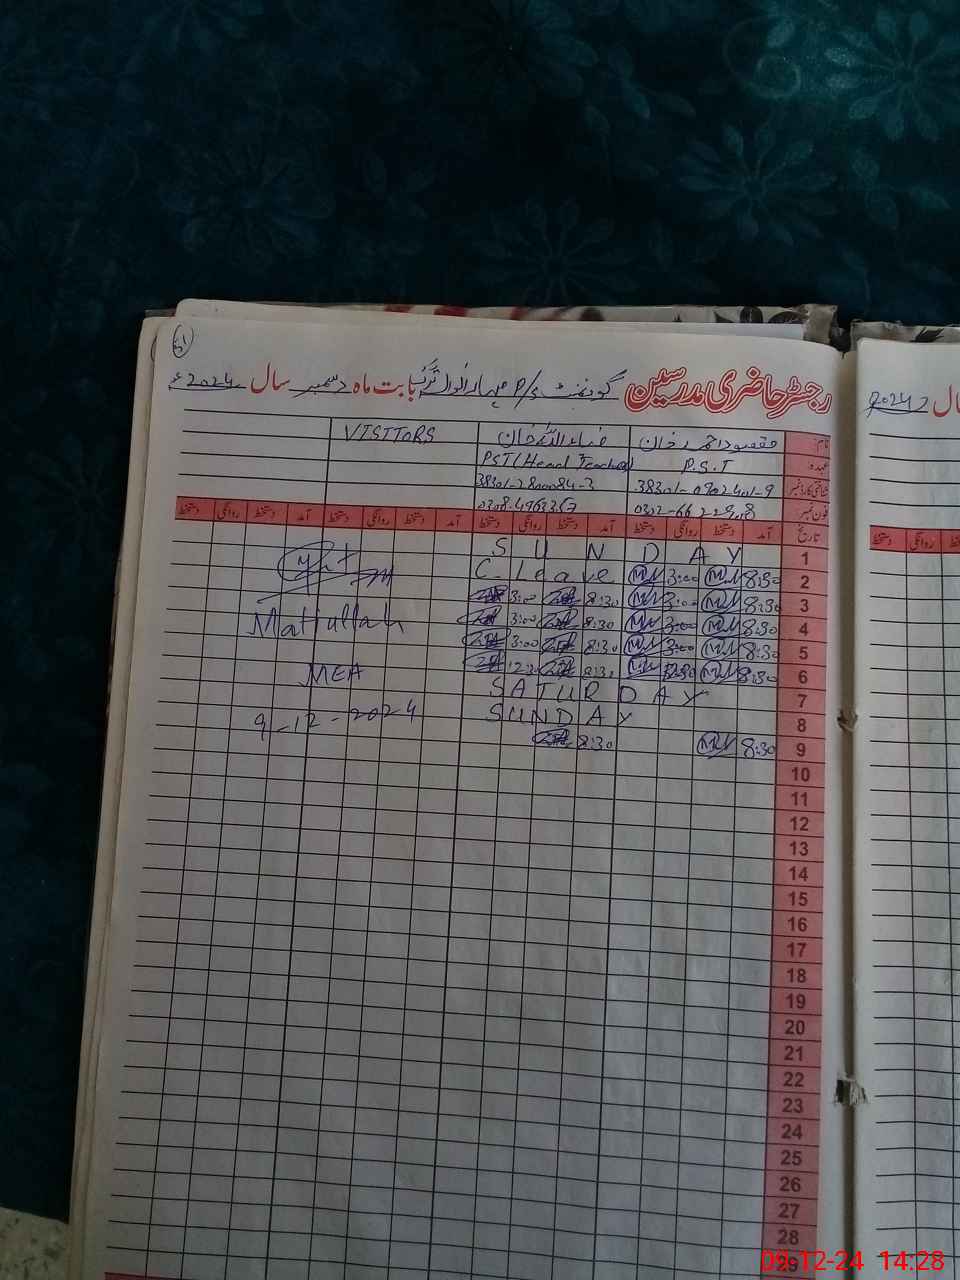 51
رجسٹر حاضری مدرسین گورنمنٹ P/s بابت ماہ دسمبر سال 2024ء
نام: مقصود احمد خان ضیاء اللہ خان VISITORS
عہدہ: P.S.T PST (Head Teacher)
شناختی کارڈ نمبر 38301-0902401-9 38301-2800084-3
فون نمبر
تاریخ آمد دستخط روانگی دستخط آمد دستخط روانگی دستخط آمد دستخط روانگی دستخط آمد دستخط روانگی دستخط
1 SUNDAY
2 8:30 3:00 C. Leave
3 8:30 3:00 8:30 3:00
4 8:30 3:00 8:30 3:00
Matiullah
5 8:30 3:00 8:30 3:00
6 8:30 12:30 8:30 12:30
MEA
7 SATURDAY
8 SUNDAY
9-12-2024
9 8:30 8:30
10
11
12
13
14
15
16
17
18
19
20
21
22
23
24
25
26
27
28
29
سال 2024
دستخط روانگی دستخط
09-12-24 14:28